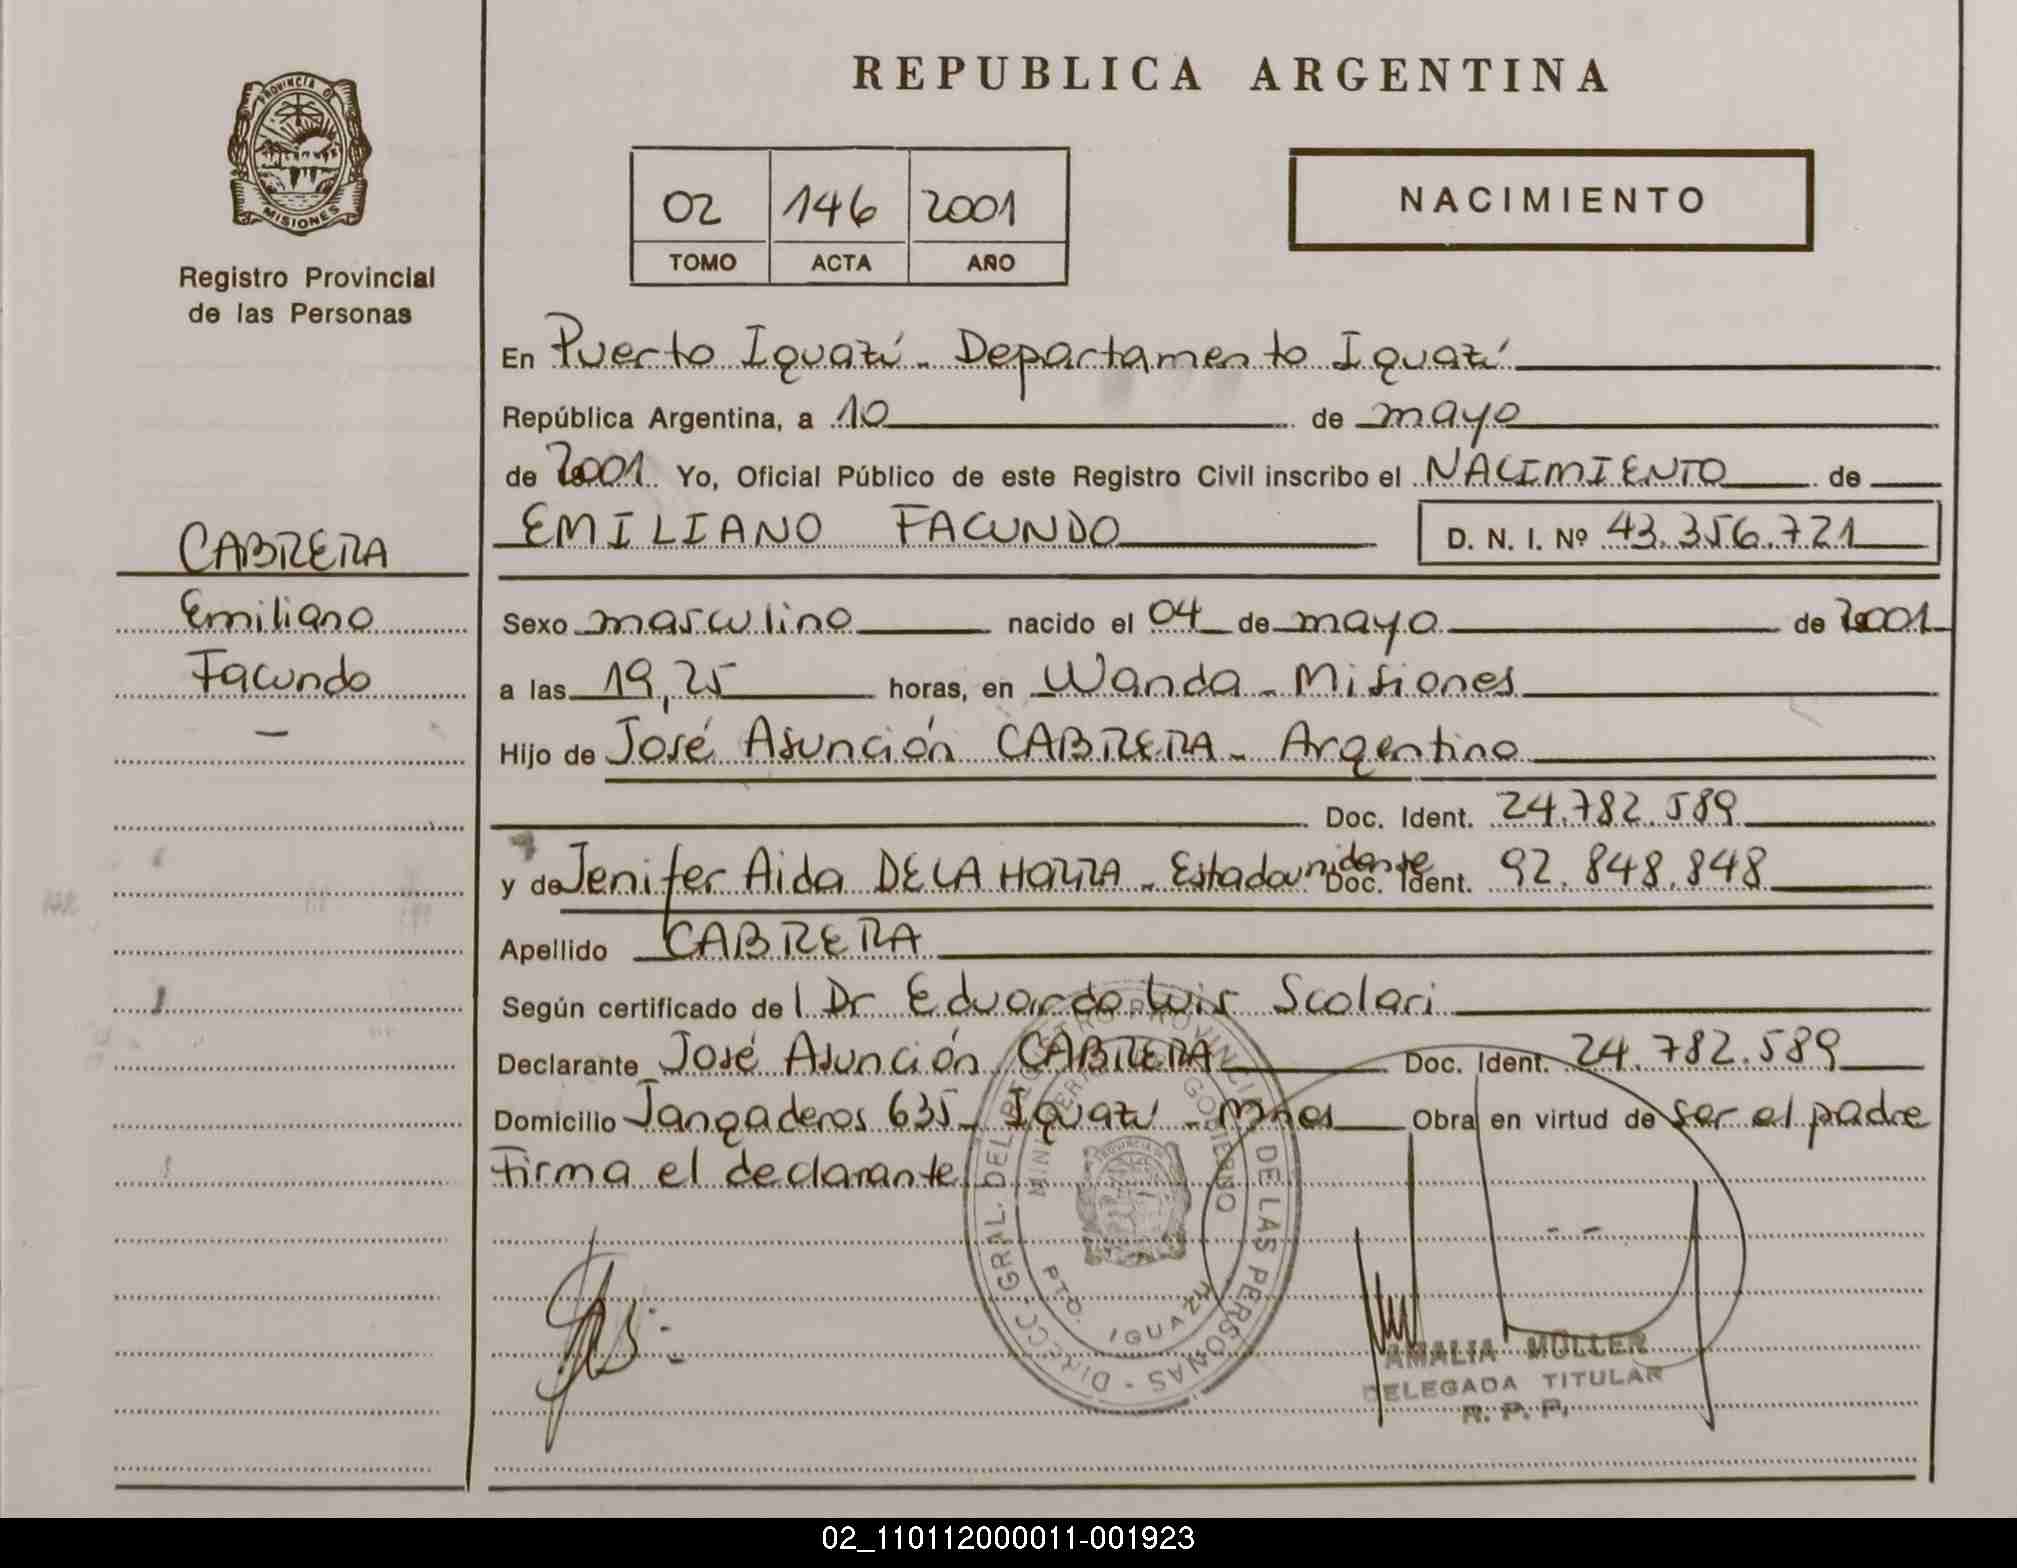 REPUBLICA ARGENTINA
PROVINCIA D
MISIONES
Registro Provincial
de las Personas
02 146 2001
TOMO ACTA AÑO
NACIMIENTO
En Puerto Iguazú - Departamento Iguazú
República Argentina, a 10 de mayo
de 2001 Yo, Oficial Público de este Registro Civil inscribo el NACIMIENTO de
EMILIANO FACUNDO D. N. I. Nº 43.356.721
CABRERA
Emiliano
Facundo
-
Sexo masculino nacido el 04 de mayo de 2001
a las 19,25 horas, en Wanda - Misiones
Hijo de José Asunción CABRERA - Argentino
Doc. Ident. 24.782.589
y de Jenifer Aida DE LA HOZZA - Estadounidense Doc. Ident. 92.848.848
Apellido CABRERA
Según certificado de l Dr Eduardo Luis Scolari
Declarante José Asunción CABRERA Doc. Ident. 24.782.589
Domicilio Jangaderos 635 - Iguazú - Mnes Obra en virtud de ser el padre
Firma el declarante
DIRECC. GRAL. DEL REGISTRO PROVINCIAL DE LAS PERSONAS -
MINISTERIO GOBIERNO
PTO. IGUAZU
AMALIA MÜLLER
DELEGADA TITULAR
R. P. P.
02_110112000011-001923